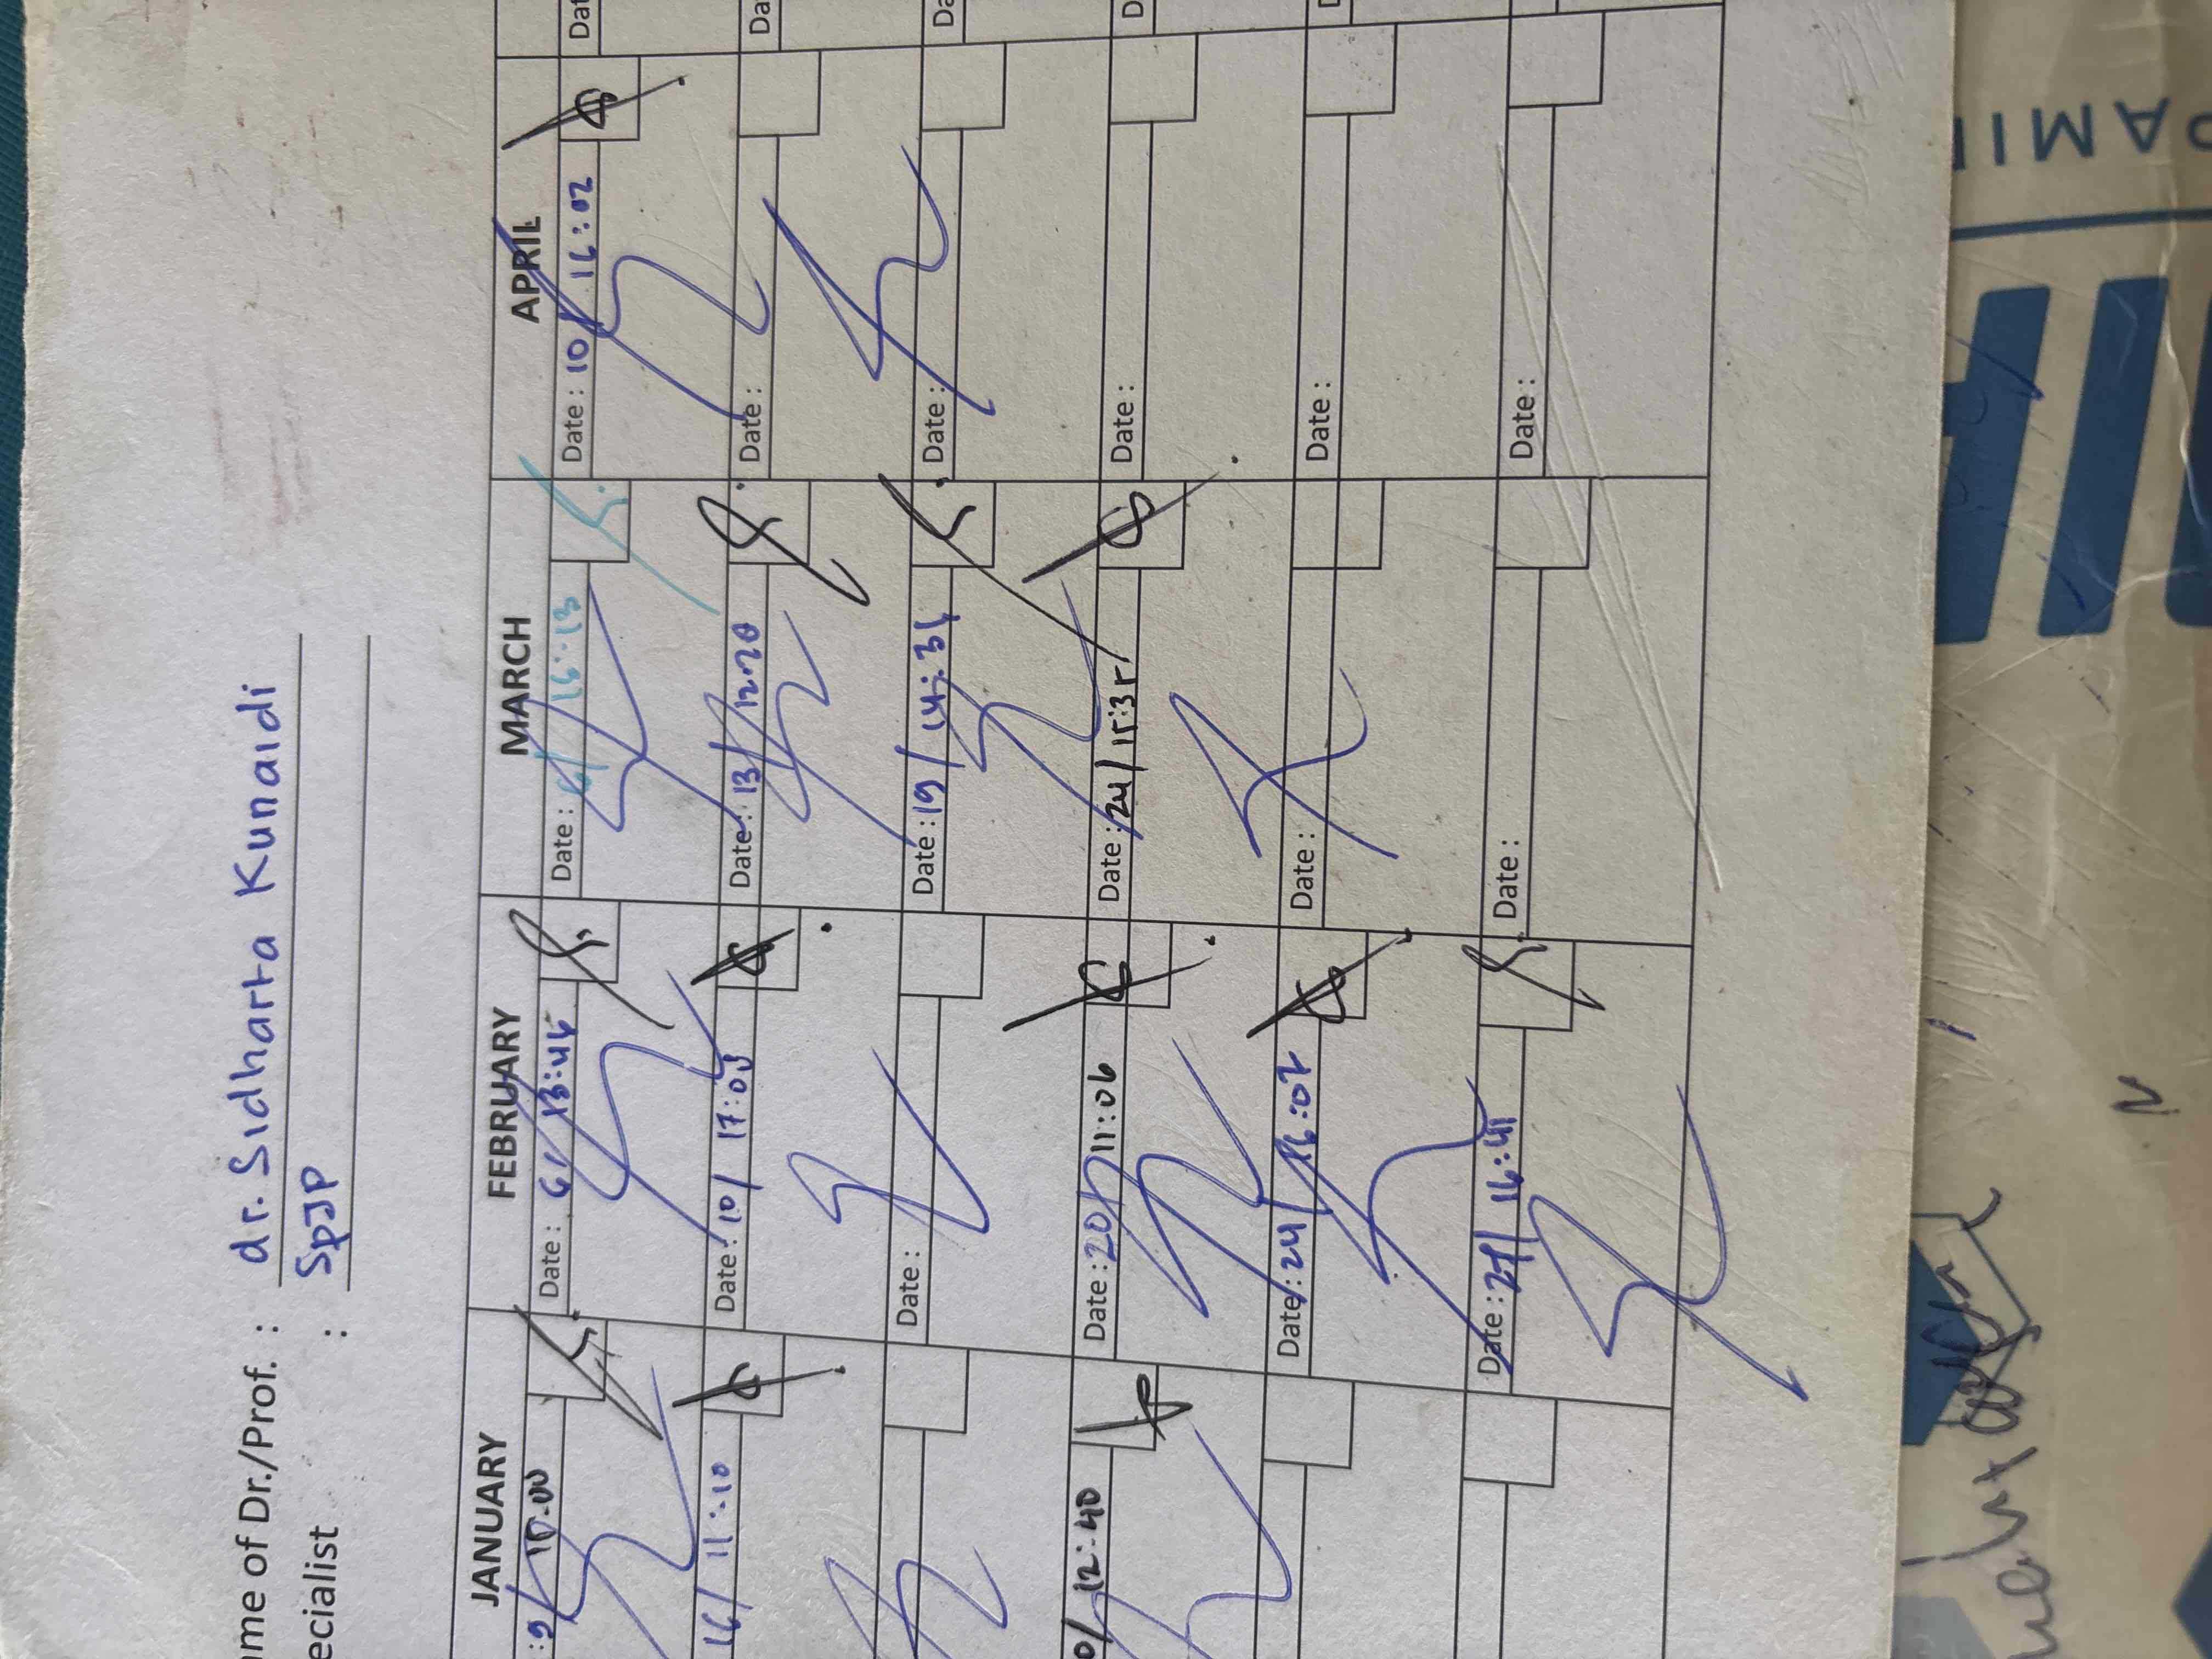 ame of Dr./Prof. : dr. Sidharta Kunaidi
ecialist : SpJP
JANUARY FEBRUARY MARCH APRIL
: 9/ 15.00 Date : 6/ 13:46 Date : 16:13 Date : 10/ 16:02 Dat
16/ 11:10 Date : 10/ 17:03 Date : 13/ 12.20 Date : Da
Date : Date : 19/ 14:36 Date : Da
0/ 12:40 Date : 20/ 11:06 Date : 24/ 15:35 Date : D
Date : 24/ 16:02 Date : Date : D
Date : 27/ 16:41 Date : Date :